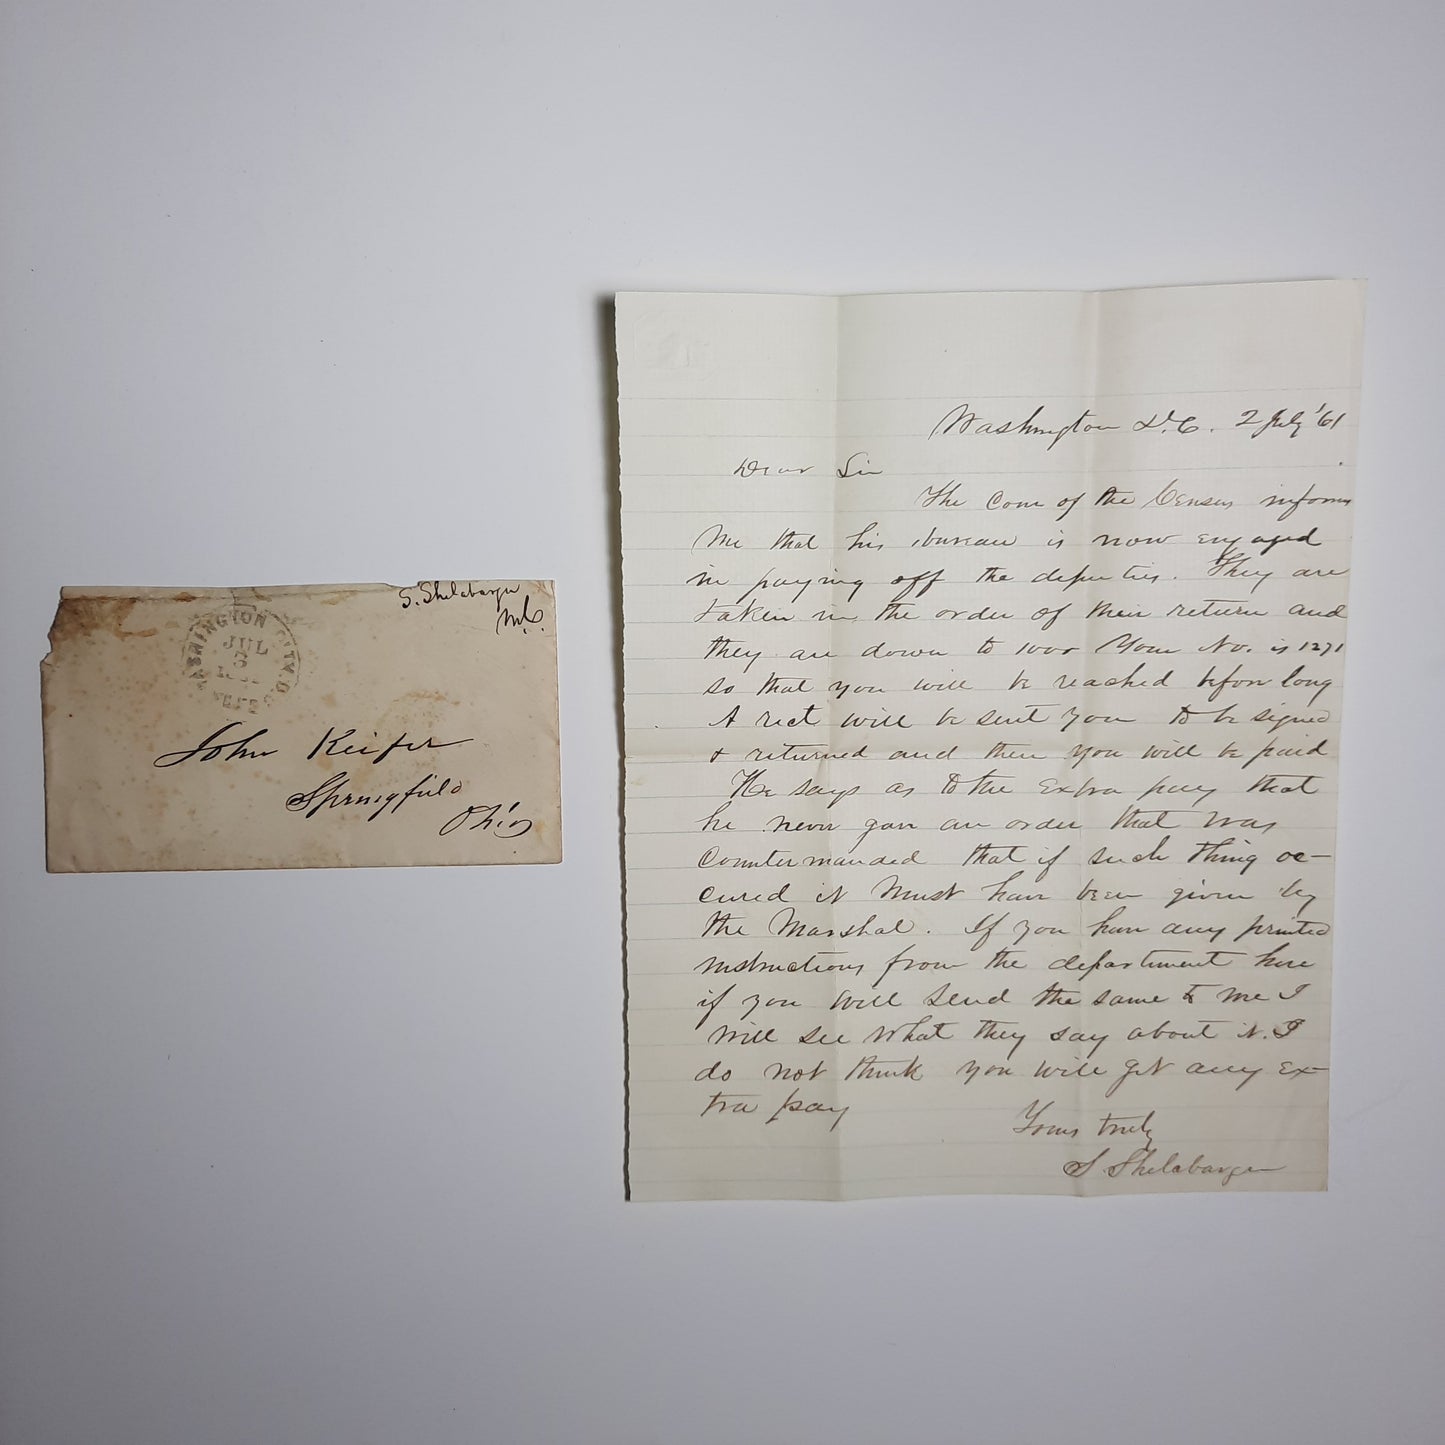 S. Shelabarger
M.C.
WASHINGTON CITY, D.C.
JUL
3
1861
FREE
John Keifer
Springfield
Ohio
Washington D.C. 2 July '61
Dear Sir
The Com of the Census informs
me that his bureau is now engaged
in paying off the deputies. They are
taken in the order of their return and
they are down to 1000 Your No. is 1271
so that you will be reached before long
A rect will be sent you to be signed
& returned and then you will be paid
He says as to the extra pay that
he never gave an order that was
countermanded that if such thing oc-
cured it must have been given by
the Marshal. If you have any printed
instructions from the department here
if you will send the same to me I
will see what they say about it. I
do not think you will get any ex-
tra pay
Yours truly
S. Shelabarger